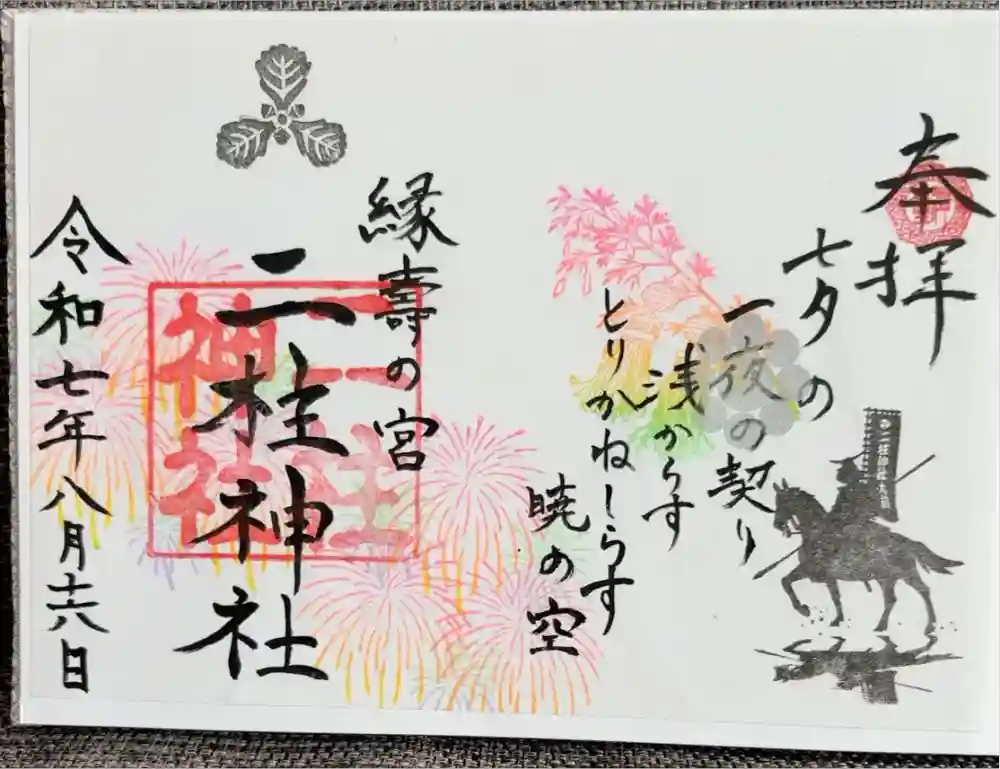 奉拝
七夕の
一夜の契り
浅からす
とりかねしらす
暁の空
縁壽の宮
二柱神社
二柱
神社
令和七年八月十六日